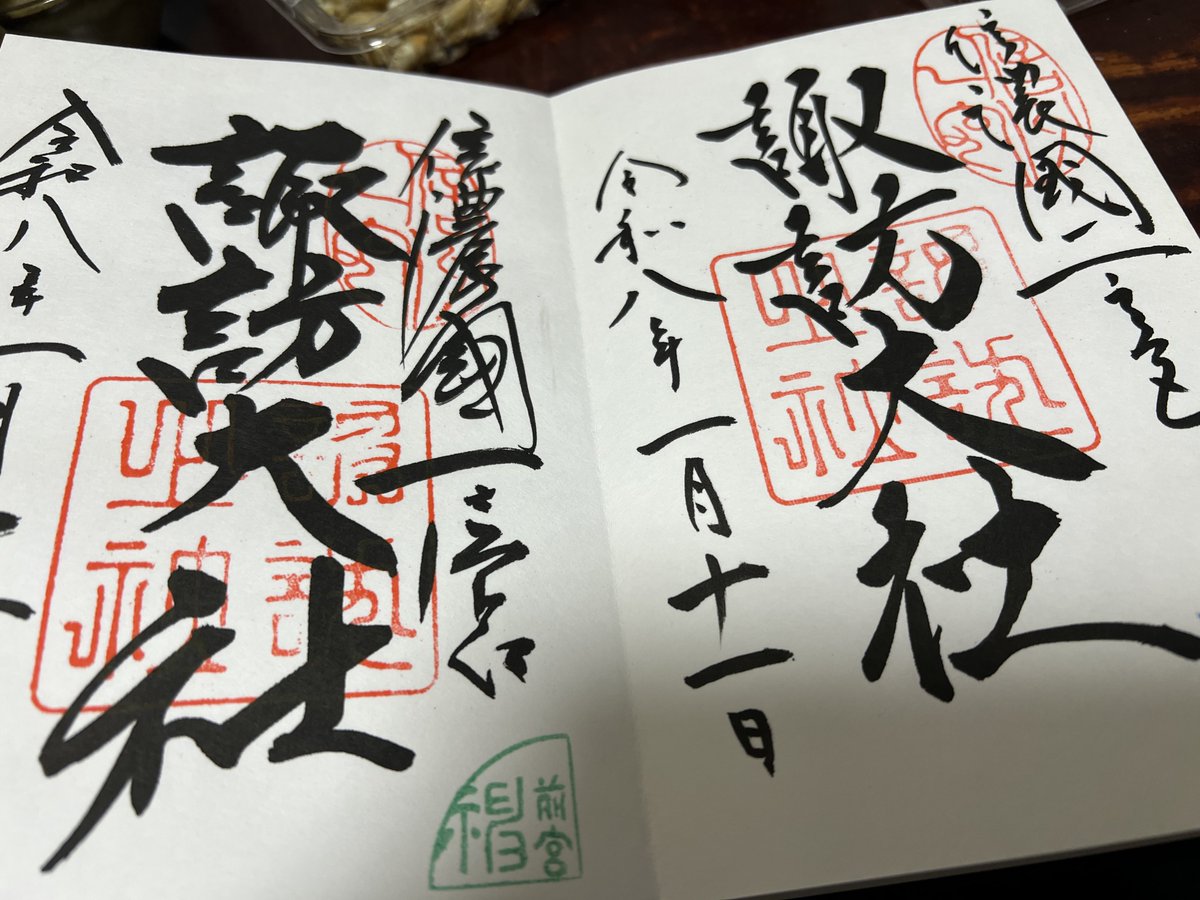 信濃國一之宮
諏訪大社
令和八年一月十一日
信濃國一之宮
諏訪大社
令和八年一月十
諏訪
明神
諏訪
明神
前宮